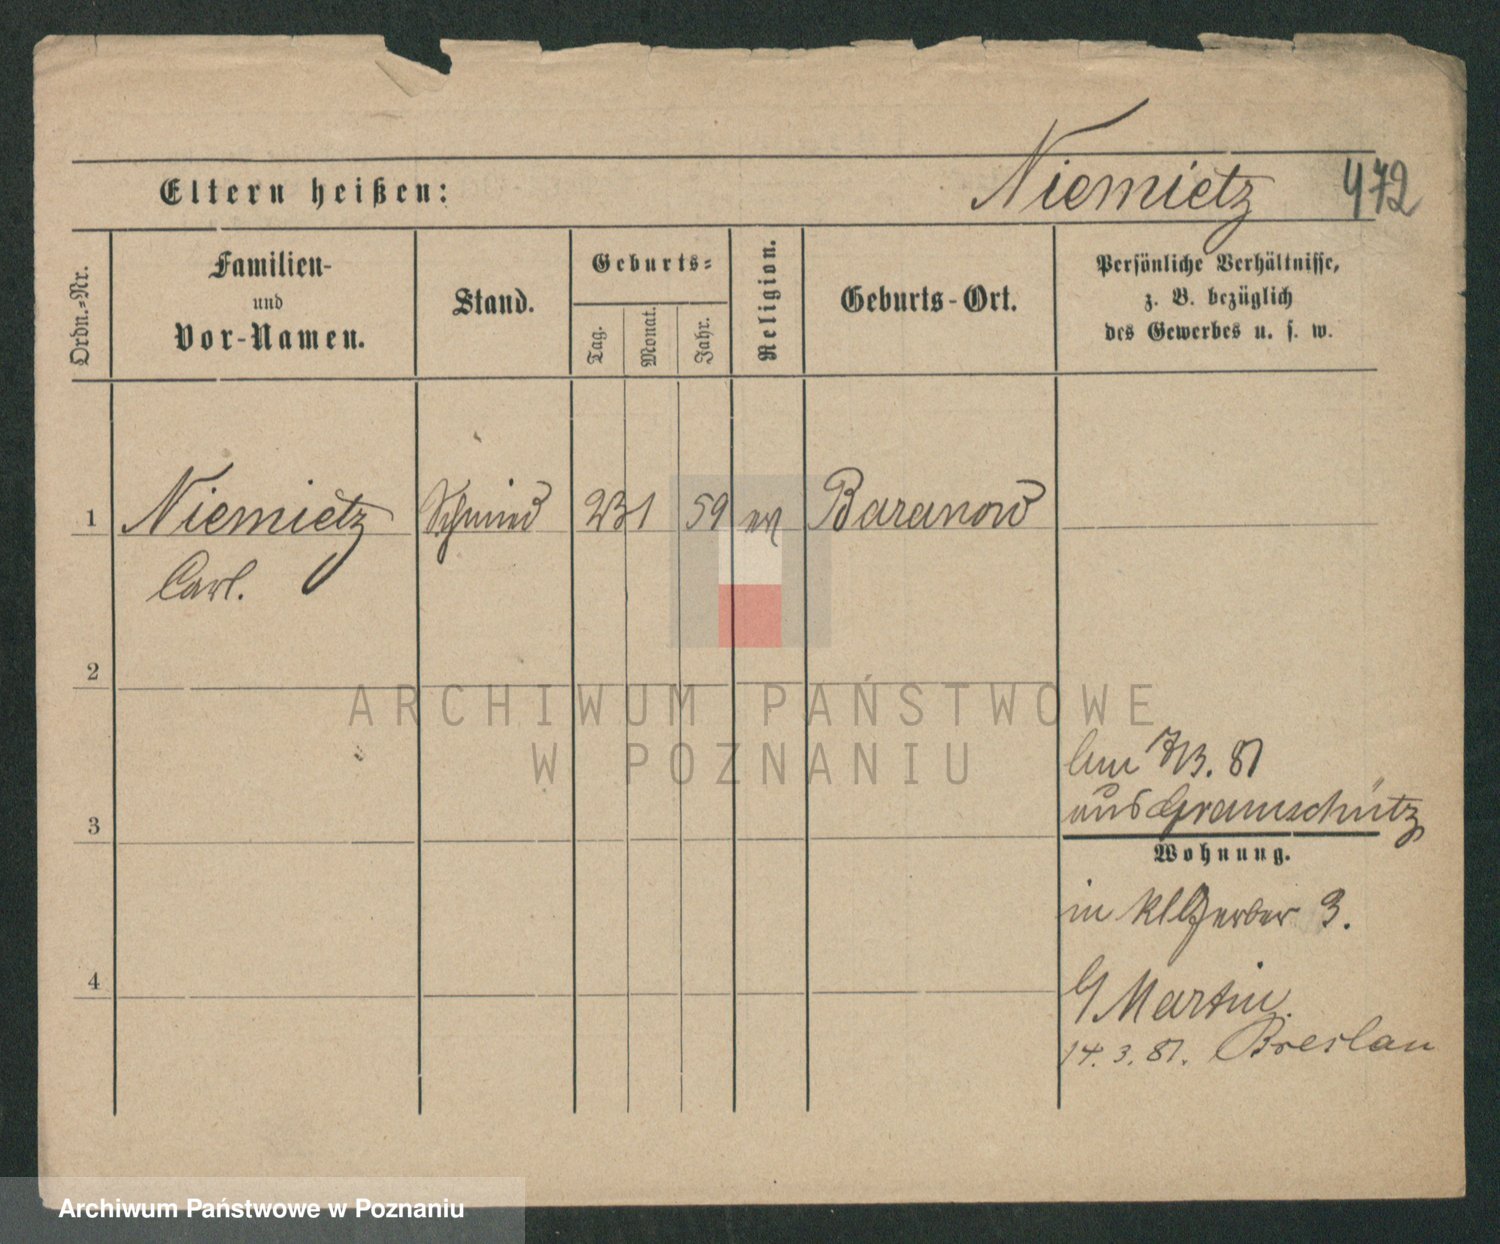 Niemietz 472
Eltern heißen:
Ordn.-Nr.
Familien-
und
Vor-Namen.
Stand.
Geburts-
Tag.
Monat.
Jahr.
Religion.
Geburts-Ort.
Persönliche Verhältnisse,
z. B. bezüglich
des Gewerbes u. s. w.
1 Niemietz Schmied 23 1 59 ev Baranow
Carl.
2
ARCHIWUM PAŃSTWOWE
W POZNANIU
7/3. 81
3
aus Gramschütz
Wohnung.
in kl Gerber 3.
4
Martin.
14. 3. 81. Breslau
Archiwum Państwowe w Poznaniu